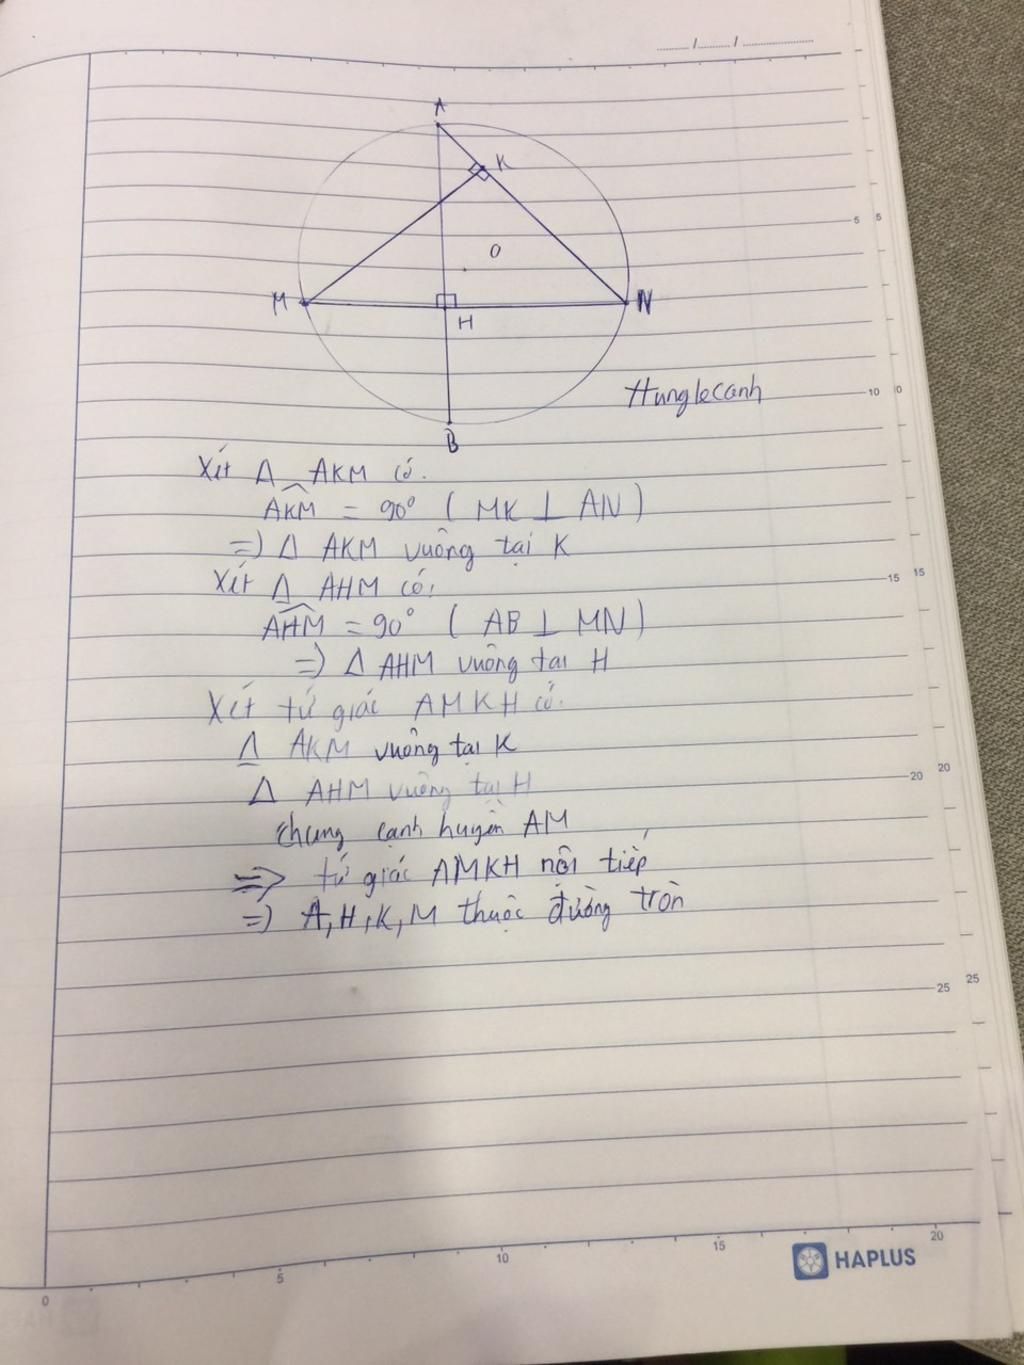 A
K
O
M
N
H
Hunglecanh
B
Xét Δ AKM có.
AKM = 90° ( MK ⊥ AN )
=) Δ AKM vuông tại K
Xét Δ AHM có:
AHM = 90° ( AB ⊥ MN )
=) Δ AHM vuông tại H
Xét tứ giác AMKH có:
Δ AKM vuông tại K
Δ AHM vuông tại H
chung cạnh huyền AM
=> tứ giác AMKH nội tiếp
=) A, H, K, M thuộc đường tròn
5 5
10 0
15 15
20 20
25 25
0 5 10 15 20
HAPLUS